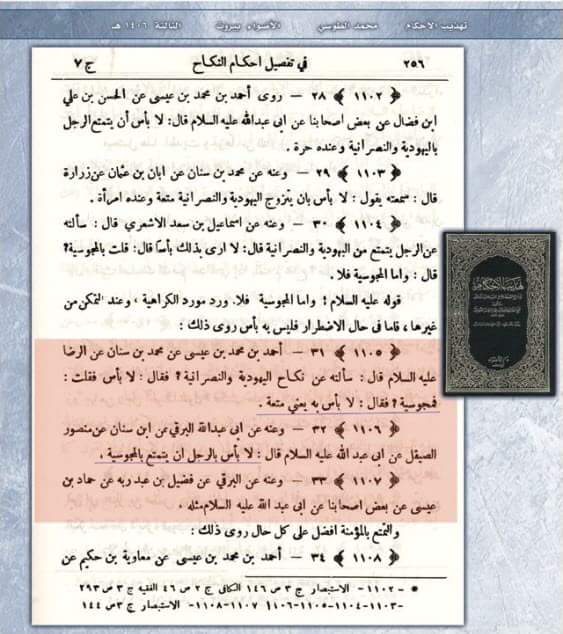 تهذيب الأحكام محمد الطوسي الأضواء بيروت الثالثة ١٤٠٦ هـ
٢٥٦ في تفصيل احكام النكاح ج ٧
﴿ ١١٠٢ ﴾ ٢٨ - روى أحمد بن محمد بن عيسى عن الحسن بن علي
ابن فضال عن بعض اصحابنا عن ابى عبدالله عليه السلام قال: لا بأس أن يتمتع الرجل
باليهودية والنصرانية وعنده حرة .
﴿ ١١٠٣ ﴾ ٢٩ - وعنه عن محمد بن سنان عن ابان بن عثمان عن زرارة
قال : سمعته يقول : لا بأس بان يتزوج اليهودية والنصرانية متعة وعنده امرأة .
﴿ ١١٠٤ ﴾ ٣٠ - وعنه عن اسماعيل بن سعد الاشعري قال : سألته
عن الرجل يتمتع من اليهودية والنصرانية قال: لا ارى بذلك بأسا قال: قلت بالمجوسية؟
قال : واما المجوسية فلا .
قوله عليه السلام ؛ واما المجوسية فلا. ورد مورد الكراهية ، وعند التمكن من
غيرها ، فاما في حال الاضطرار فليس به بأس روى ذلك :
﴿ ١١٠٥ ﴾ ٣١ - أحمد بن محمد بن عيسى عن محمد بن سنان عن الرضا
عليه السلام قال : سألته عن نكاح اليهودية والنصرانية ؟ فقال : لا بأس فقلت :
فمجوسية؟ فقال : لا بأس به يعني متعة .
﴿ ١١٠٦ ﴾ ٣٢ - وعنه عن ابى عبدالله البرقي عن ابن سنان عن منصور
الصيقل عن ابى عبد الله عليه السلام قال : لا بأس بالرجل ان يتمتع بالمجوسية .
﴿ ١١٠٧ ﴾ ٣٣ - وعنه عن البرقي عن فضيل بن عبد ربه عن حماد بن
عيسى عن بعض اصحابنا عن ابى عبد الله عليه السلام مثله .
والتمتع بالمؤمنة افضل على كل حال روى ذلك :
﴿ ١١٠٨ ﴾ ٣٤ - أحمد بن محمد بن عيسى عن معاوية بن حكيم عن
* - ١١٠٢ - الاستبصار ج ٣ ص ١٤٦ الكافى ج ٢ ص ٤٦ الفقيه ج ٣ ص ٢٩٣
- ١١٠٣ - ١١٠٤ - ١١٠٥ - ١١٠٦ - ١١٠٧ - ١١٠٨ - الاستبصار ج ٣ ص ١٤٤
تهذيب الأحكام